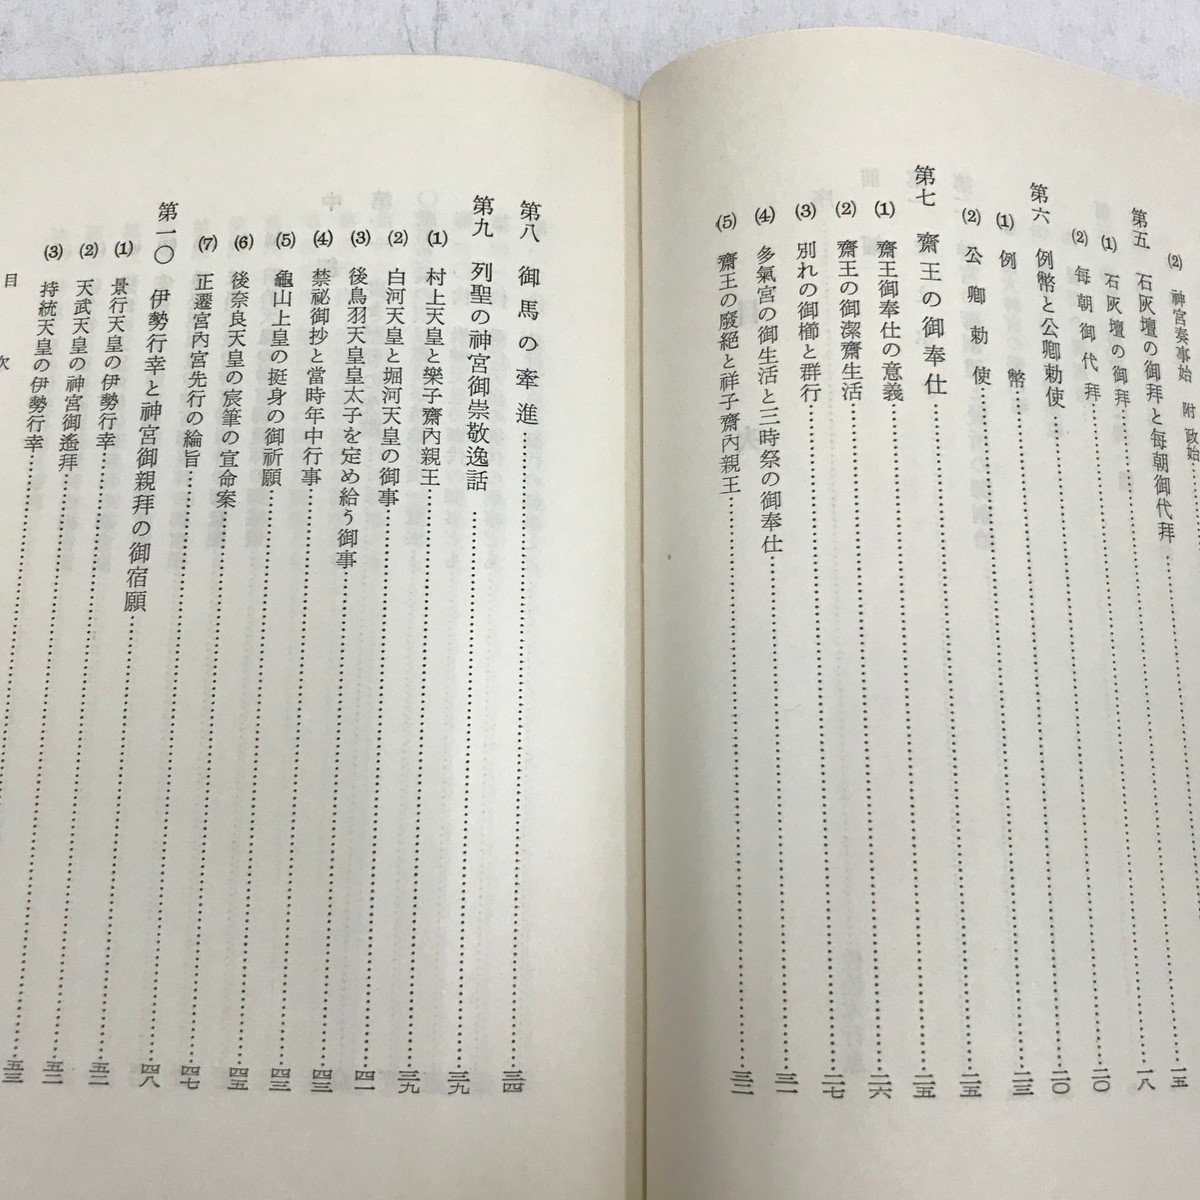 (2) 神宮奏事始 附 政始……一五
第五 石灰壇の御拜と每朝御代拜……一八
(1) 石灰壇の御拜……二〇
(2) 每朝御代拜……二〇
第六 例幣と公卿勅使……二〇
(1) 例幣……二三
(2) 公卿勅使……二五
第七 齋王の御奉仕……二五
(1) 齋王御奉仕の意義……二六
(2) 齋王の御潔齋生活……二六
(3) 別れの御櫛と群行……二七
(4) 多氣宮の御生活と三時祭の御奉仕……三一
(5) 齋王の廢絕と祥子齋內親王……三二
第八 御馬の牽進……三四
第九 列聖の神宮御崇敬逸話……三九
(1) 村上天皇と樂子齋內親王……三九
(2) 白河天皇と堀河天皇の御事……三九
(3) 後鳥羽天皇皇太子を定め給う御事……四一
(4) 禁祕御抄と當時年中行事……四三
(5) 龜山上皇の挺身の御祈願……四三
(6) 後奈良天皇の宸筆の宣命案……四五
(7) 正遷宮內宮先行の綸旨……四七
第一〇 伊勢行幸と神宮御親拜の御宿願……四八
(1) 景行天皇の伊勢行幸……五二
(2) 天武天皇の神宮御遙拜……五二
(3) 持統天皇の伊勢行幸……五三
目次